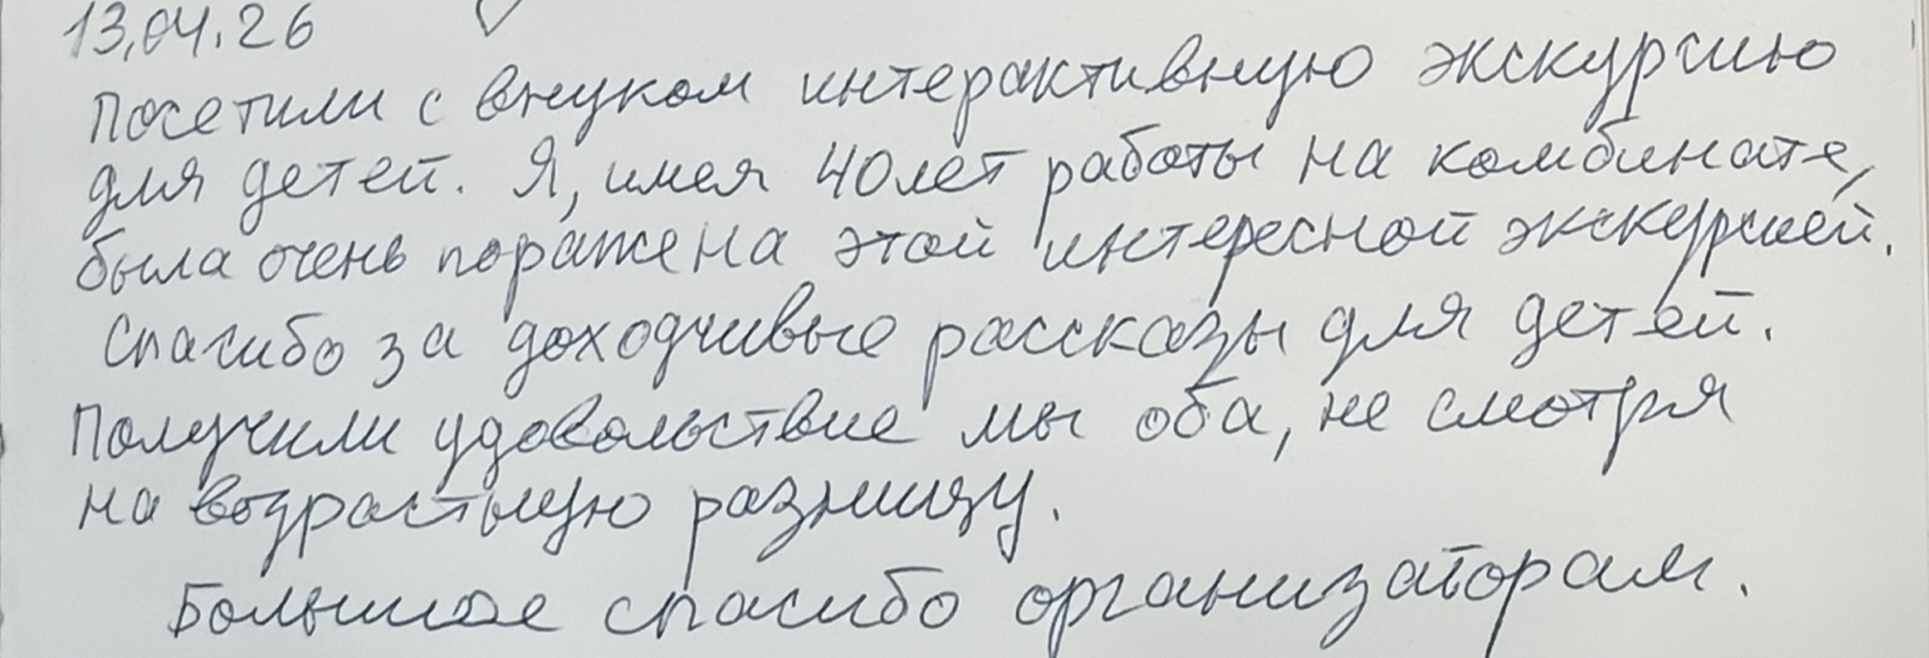 13.04.26
Посетили с внуком интерактивную экскурсию
для детей. Я, имея 40 лет работы на комбинате,
была очень поражена этой интересной экскурсией.
Спасибо за доходчивые рассказы для детей.
Получили удовольствие мы оба, не смотря
на возрастную разницу.
Большое спасибо организаторам.